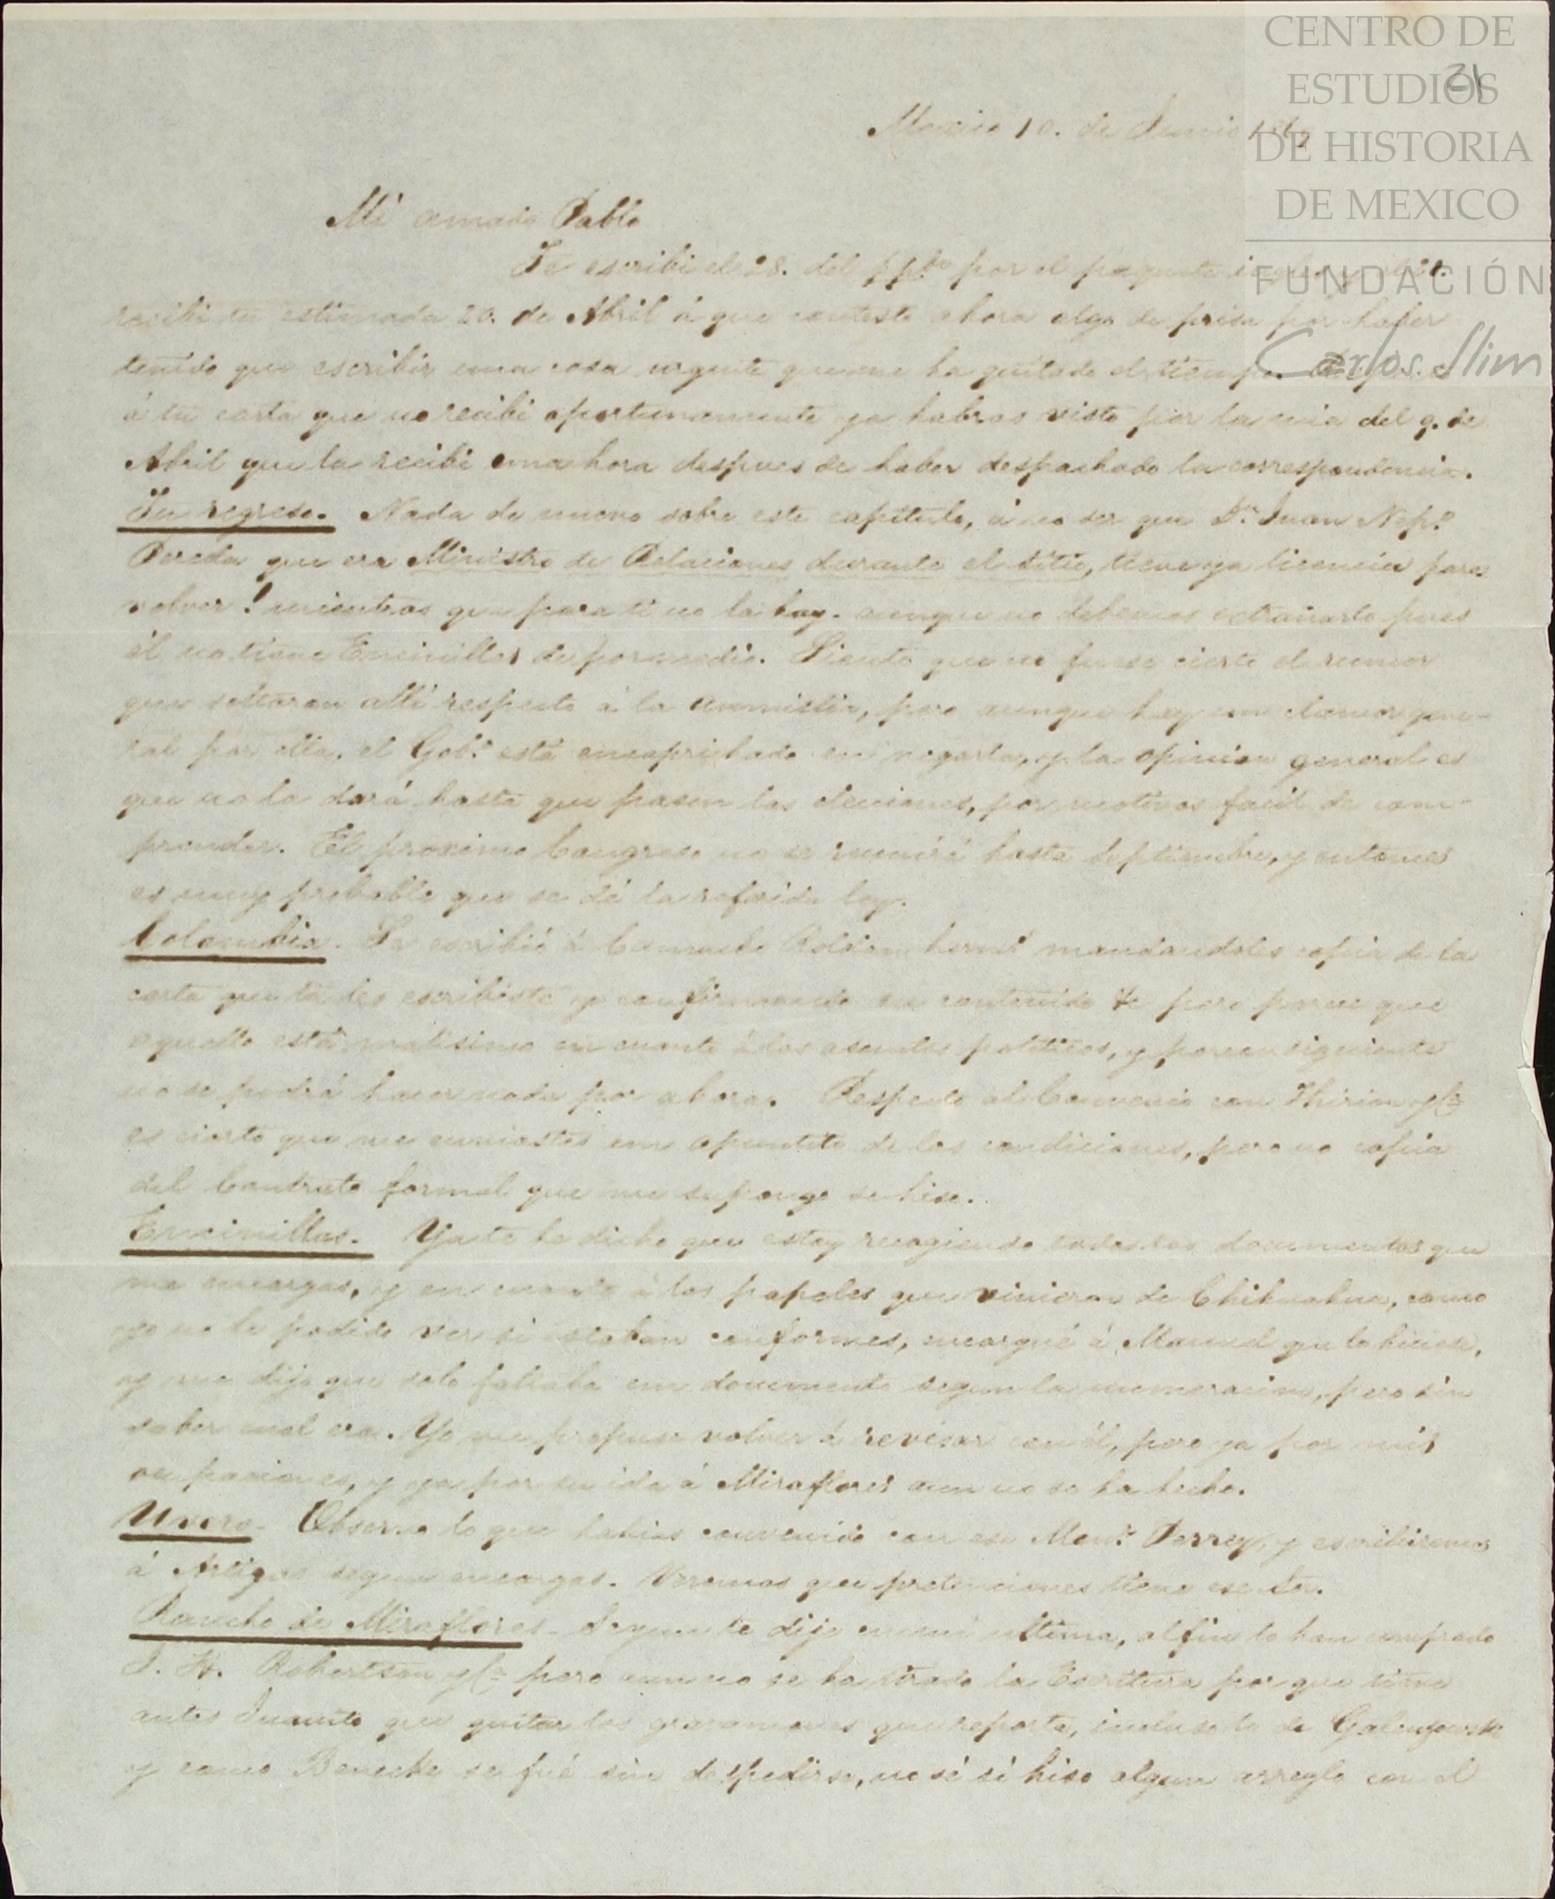 CENTRO DE
ESTUDIOS
DE HISTORIA
DE MEXICO
FUNDACIÓN
Carlos Slim
21
Mexico 10. de Junio
Mi amado Pablo
Te escribi el 28. del pp.do por el paquete
recibi tu estimada 20. de Abril á que contesto ahora algo de prisa por haber
tenido que escribir una cosa urgente que me ha quitado el tiempo.
á tu carta que no recibi oportunamente ya habras visto por la mia del 9. de
Abril que la recibi una hora despues de haber despachado la correspondencia.
Tu regreso. Nada de nuevo sobre este capitulo, á no ser que Dn. Juan Nep.o
Pereda que era Ministro de Relaciones durante el sitio, tiene ya licencia para
volver! mientras que para ti no la hay. aunque no debemos extrañarlo pues
él no tiene Encinillas de por medio. Siento que no fuese cierto el rumor
que soltaron allí respecto á la amnistia, pero aunque hay un clamor gene-
ral por ella, el Gob.o está encaprichado en negarla, y la opinion general es
que no la dará hasta que pasen las elecciones, por motivos facil de com-
prender. El proximo Congreso no se reunirá hasta Septiembre, y entonces
es muy probable que se dé la referida ley.
Colombia. Se escribió á Camacho Roldan herm.s mandandoles copia de la
carta que tú les escribiste y confirmando su contenido &c pero parece que
aquello está malisimo en cuanto á los asuntos politicos, y por consiguiente
no se podrá hacer nada por ahora. Respecto al Convenio con Thirion y Ca
es cierto que me enviastes un apuntito de las condiciones, pero no copia
del Contrato formal que me supongo se hiso.
Encinillas. Ya te he dicho que estoy recogiendo todos los documentos que
me encargas, y en cuanto á los papeles que vinieron de Chihuahua, como
yo no he podido ver si estaban conformes, encargué á Manuel que lo hiciera,
y me dijo que solo faltaba un documento segun la numeracion, pero sin
saber cual era. Yo me propuse volver á revisar con él, pero ya por mis
ocupaciones, y ya por su ida á Miraflores aun no se ha hecho.
Uvero. Observo lo que habias convenido con ese Mon.r Perrey, y escribiremos
á Artigas segun encargas. Veremos que pretenciones tiene ese Sr.
Rancho de Miraflores - Segun te dije en mi ultima, al fin lo han comprado
J. H. Robertson y Ca pero aun no se ha tirado la Escritura por que tiene
antes Juanito que quitar los gravamenes que reporta, incluso lo de
y como Benecke se fué sin despedirse, no sé si hiso algun arreglo con el